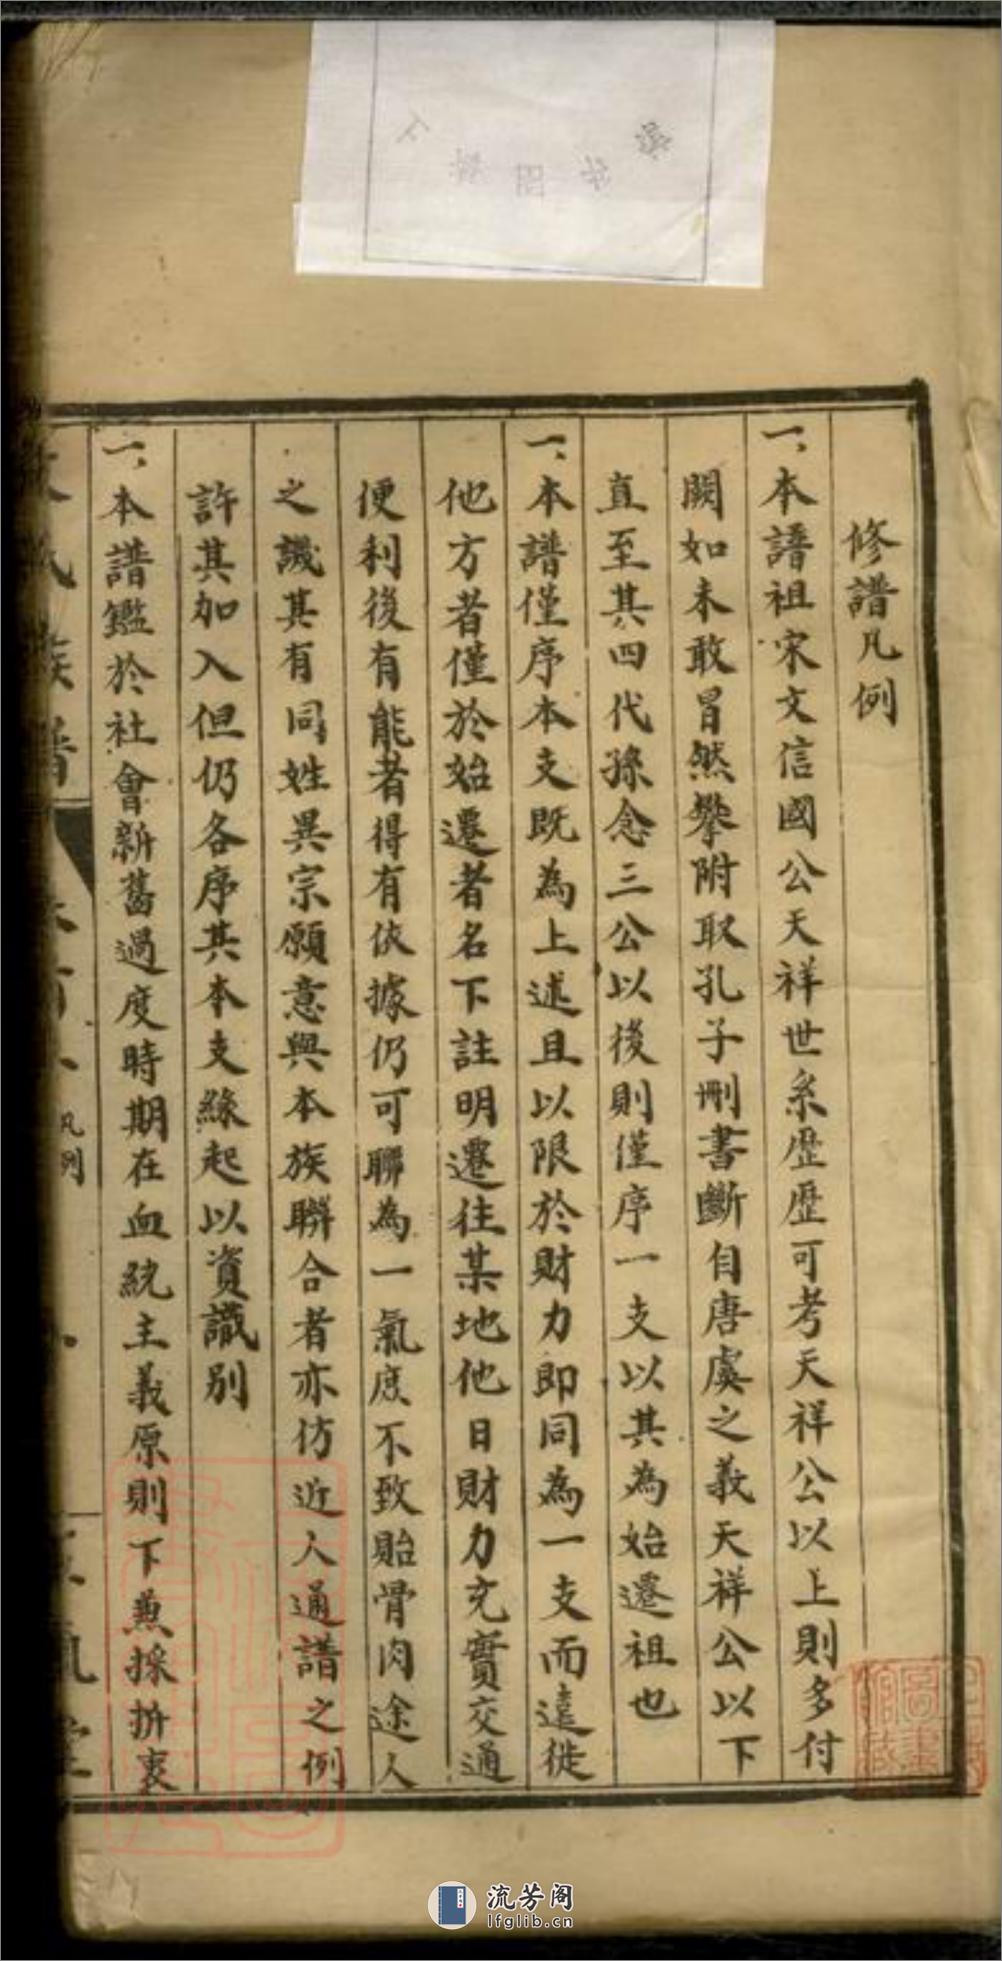 修譜凡例
一、本譜祖宋文信國公天祥世系歷歷可考天祥公以上則多付
闕如未敢冒然攀附取孔子刪書斷自唐虞之義天祥公以下
直至其四代孫念三公以後則僅序一支以其為始遷祖也
一、本譜僅序本支既為上述且以限於財力即同為一支而遠徙
他方者僅於始遷者名下註明遷往某地他日財力充實交通
便利後有能者得有依據仍可聯為一氣庶不致貽骨肉途人
之譏其有同姓異宗願意與本族聯合者亦仿近人通譜之例
許其加入但仍各序其本支緣起以資識別
一、本譜鑑於社會新舊過度時期在血統主義原則下兼採拚衷
族譜
凡例
流芳阁
lfglib.cn